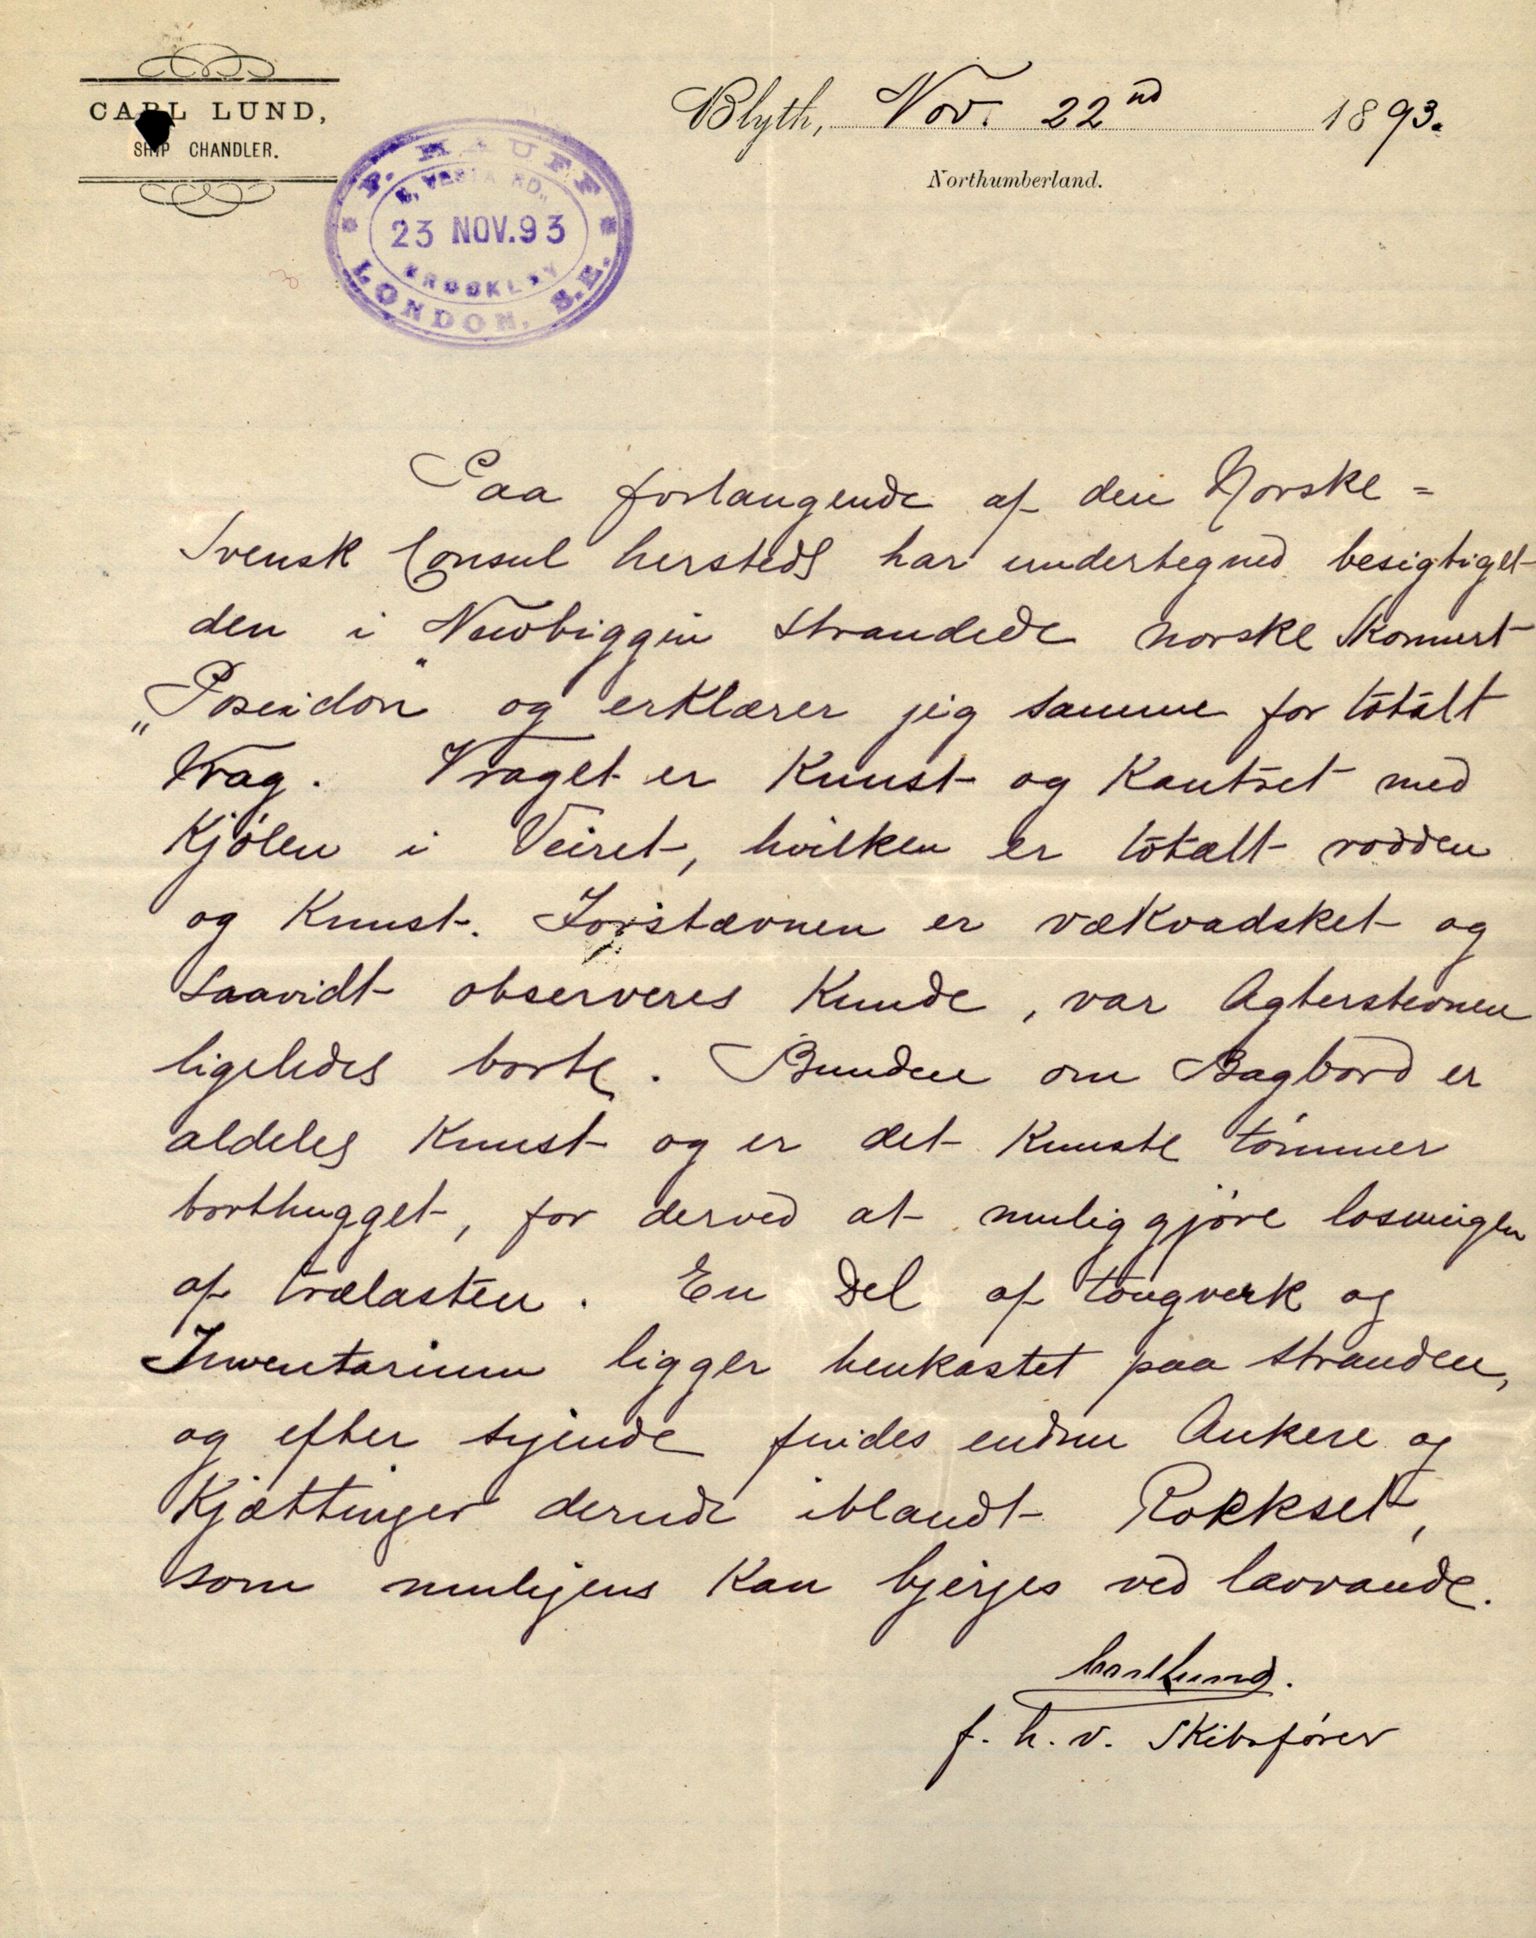 CARL LUND,
SHIP CHANDLER.
Blyth, Nov. 22nd 1893.
Northumberland.
F. HAUFF
VESTA RD.,
23 NOV.93
BROCKLEY
LONDON, S.E.
Paa forlangende af den Norske =
Svensk Consul hersteds har undertegned besigtiget
den i Newbiggin strandede norske Skonnert
„Poseidon" og erklærer jeg samme for totalt
Vrag. Vraget er Knust og Kantret med
Kjølen i Veiret, hvilken er totalt rodden
og Knust. Forstævnen er vækvadsket og
saavidt observeres Kunde, var Agterstevnen
ligeledes borte. Bunden om Bagbord er
aldeles Knust og er det Knuste tømmer
borthugget, for derved at muliggjøre losningen
af trælasten. En Del af tougverk og
Inventarium ligger henkastet paa stranden,
og efter sijende findes endnu Ankere og
Kjættinger derude iblandt Rokkset,
som muligens Kan bjerges ved lavvande.
Carl Lund.
f. h. v. Skibsfører